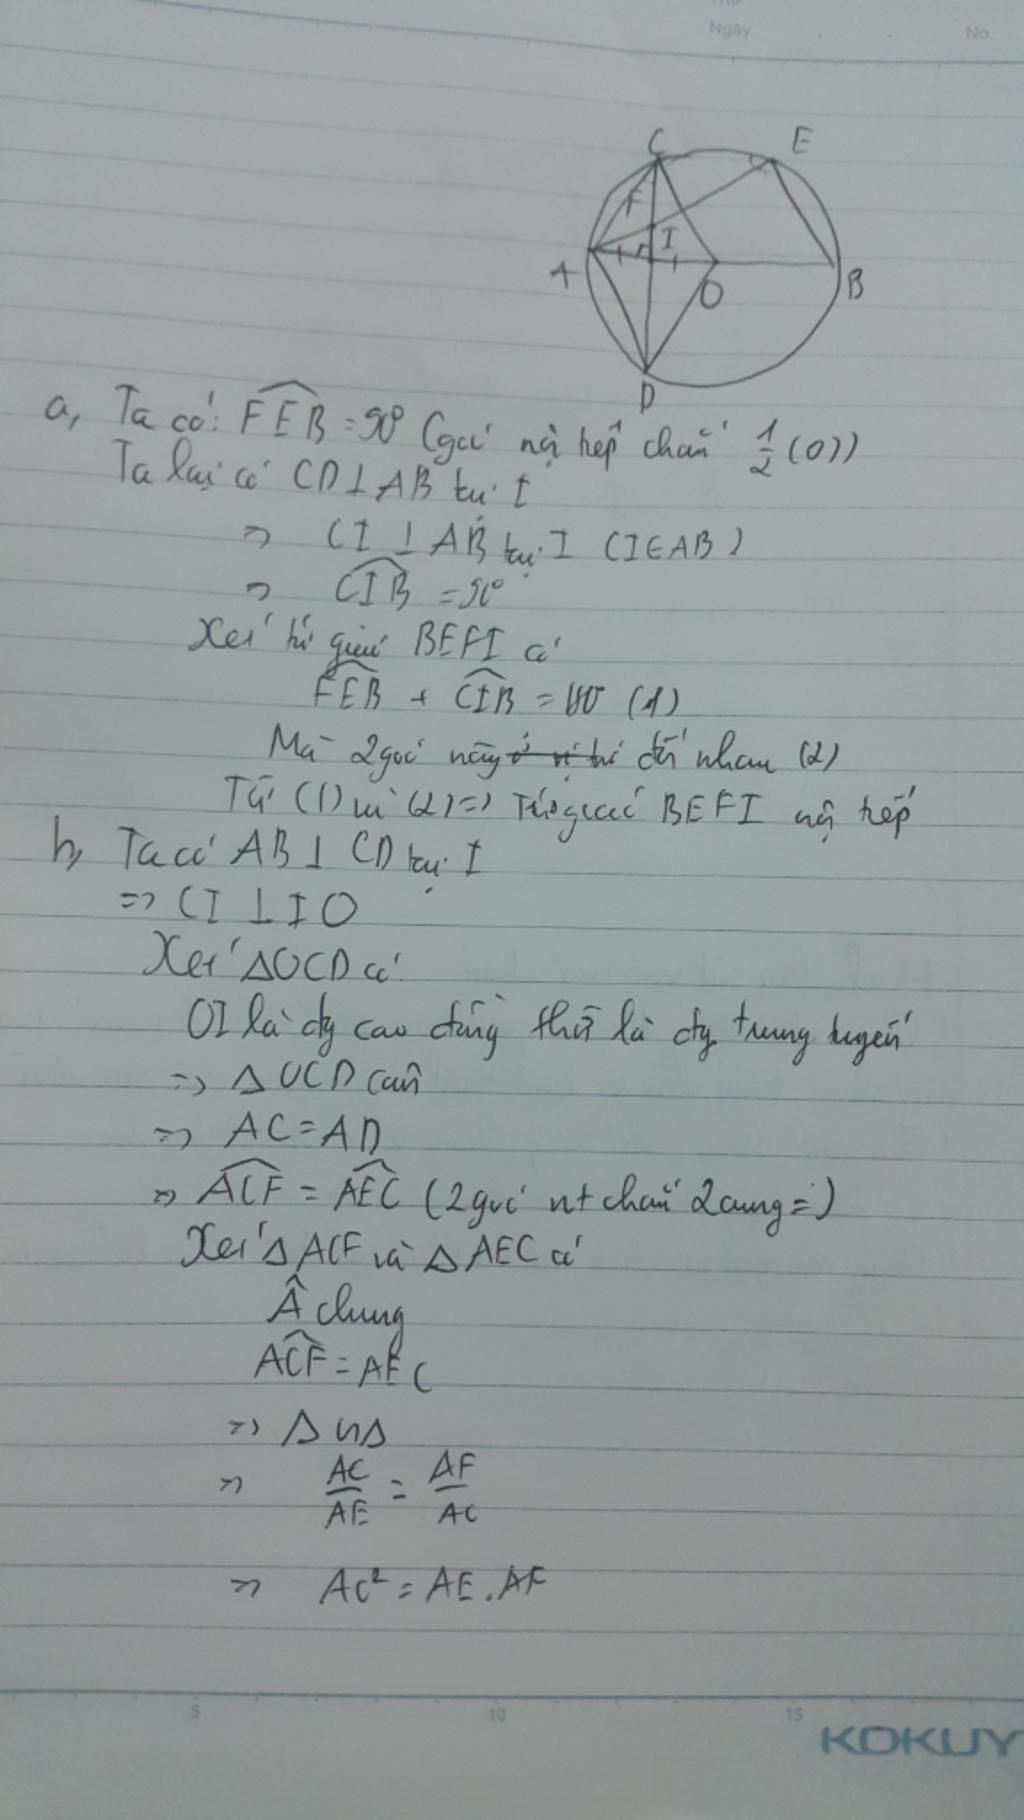 Thứ
Ngày . . No.
C E
F I
A O B
D
a, Ta có: FEB = 90° (góc nội tiếp chắn 1/2 (O))
Ta lại có CD⊥AB tại I
=> CI ⊥ AB tại I (I∈AB)
=> CIB = 90°
Xét tứ giác BEFI có
FEB + CIB = 180 (1)
Mà 2 góc này ở vị trí đối nhau (2)
Từ (1) và (2) => Tứ giác BEFI nội tiếp
b, Ta có AB⊥ CD tại I
=> CI ⊥ IO
Xét ΔOCD có
OI là đg cao đồng thời là đg trung tuyến
=> Δ OCD cân
=> AC = AD
=> ACF = AEC (2 góc nt chắn 2 cung =)
Xét Δ ACF và Δ AEC có
Â chung
ACF = AEC
=> Δ ∽ Δ
=> AC/AE = AF/AC
=> AC² = AE . AF
5 10 15
KOKUY